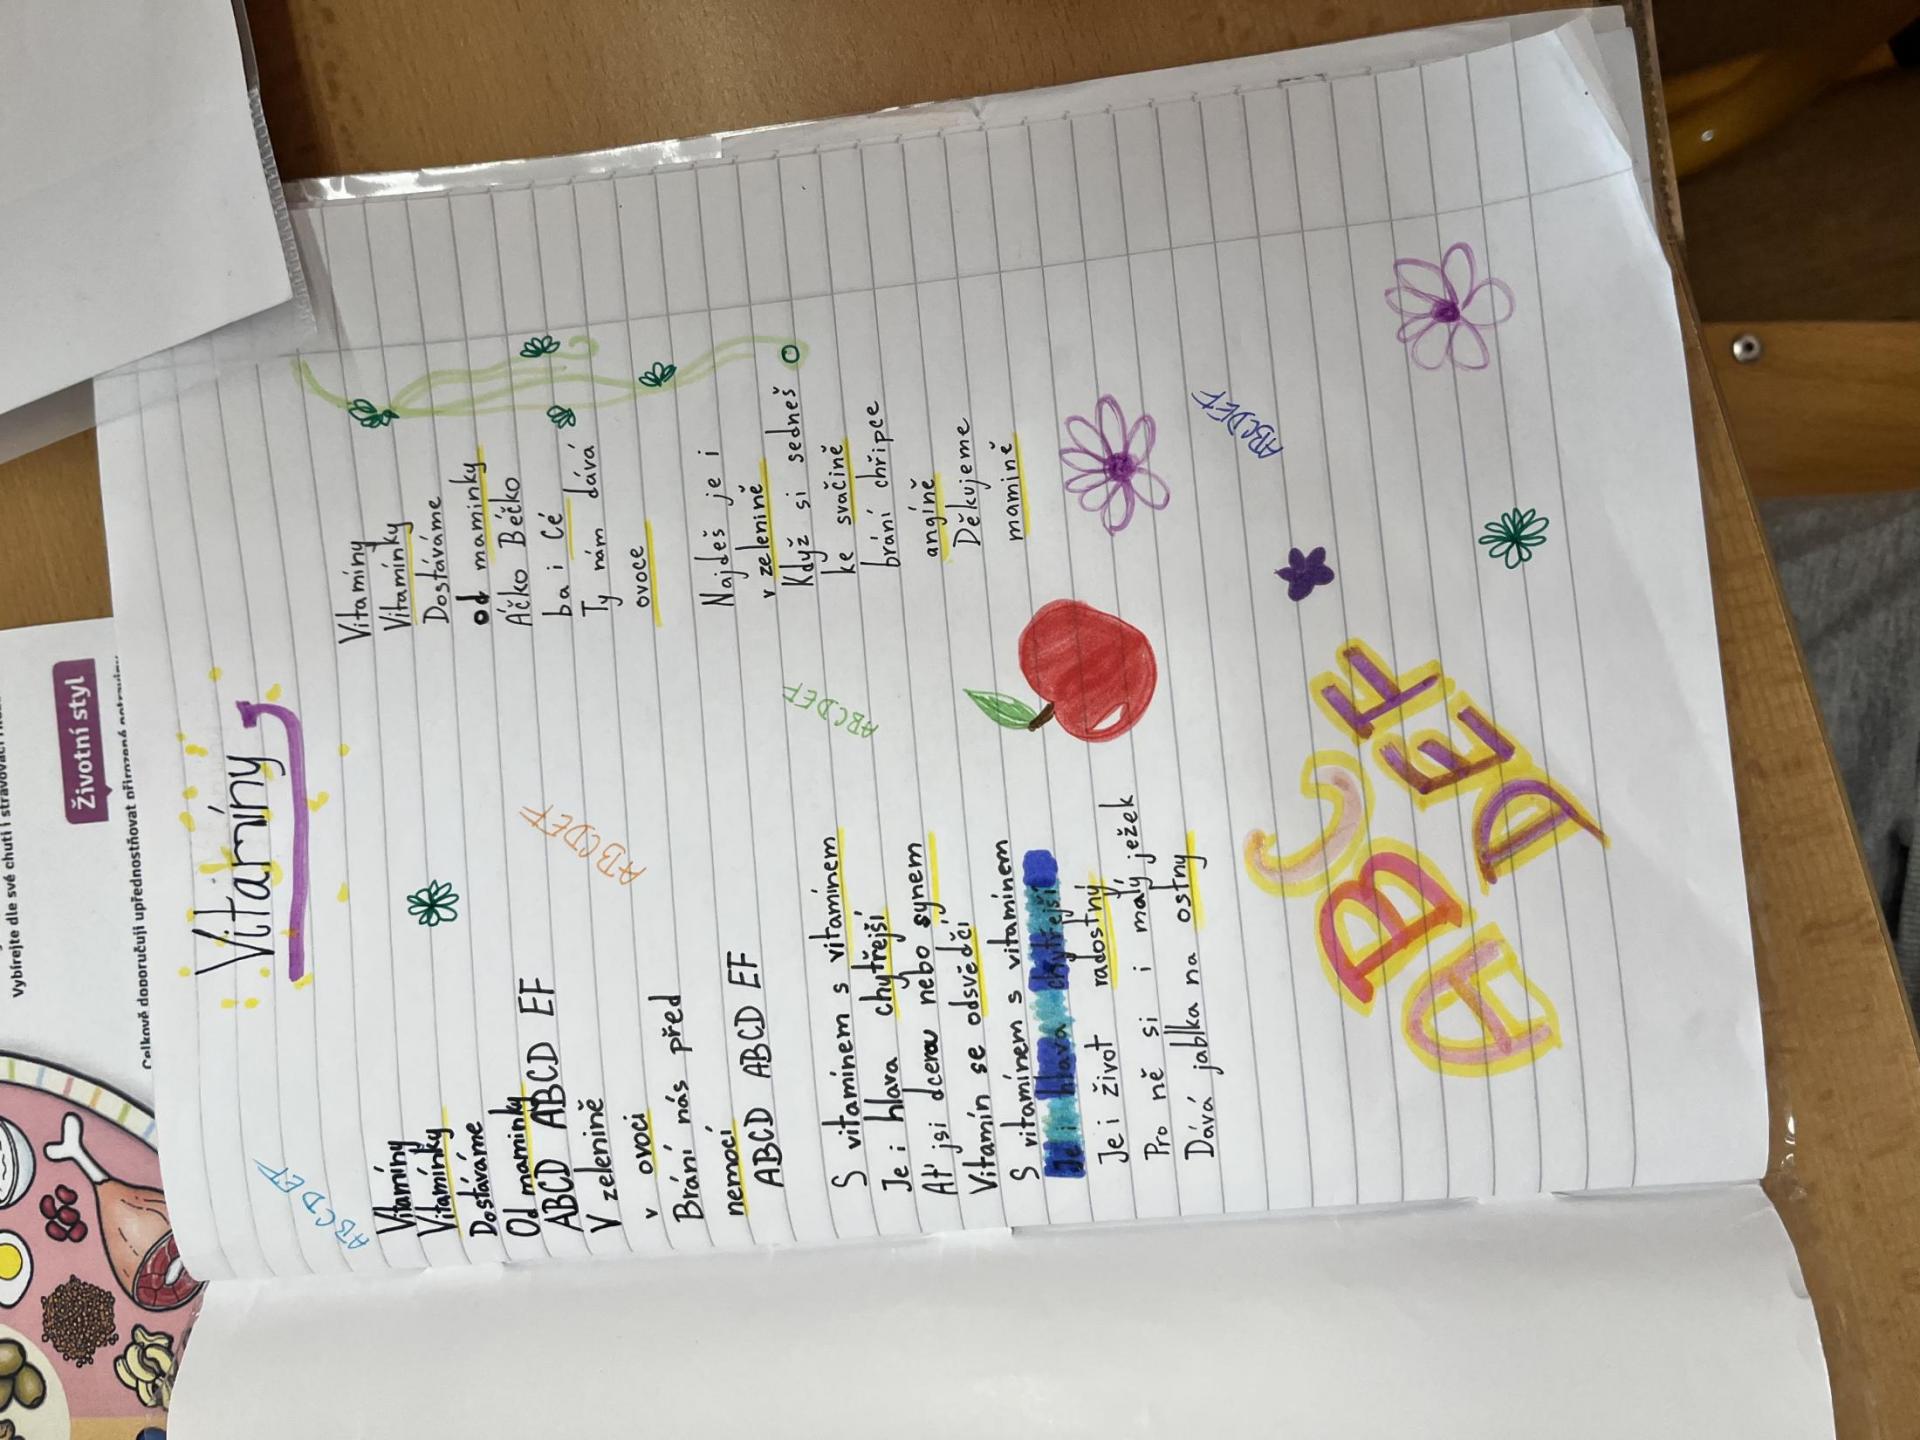 Vybírejte dle své chuti i
Životní styl
Celkově doporučují upřednostňovat přirozené potraviny
Vitamíny
ABCDEF
Vitamíny
Vitamínky
Dostáváme
Od maminky
ABCD ABCD EF
V zelenině
v ovoci
Brání nás před
nemocí
ABCD ABCD EF
ABCDEF
S vitamínem s vitamínem
Je i hlava chytřejší
Ať jsi dcerou nebo synem
Vitamín se odsvědčí
S vitamínem s vitamínem
Je i hlava chytřejší
Je i život radostný
Pro ně si i malý ježek
Dává jablka na ostny
Vitamíny
Vitamínky
Dostáváme
od maminky
Áčko Béčko
ba i Cé
Ty nám dává
ovoce
Najdeš je i
v zelenině
Když si sedneš
ke svačině
brání chřipce
angíně
Děkujeme
mamině
ABCDEF
ABCDEF
A B C
D E F